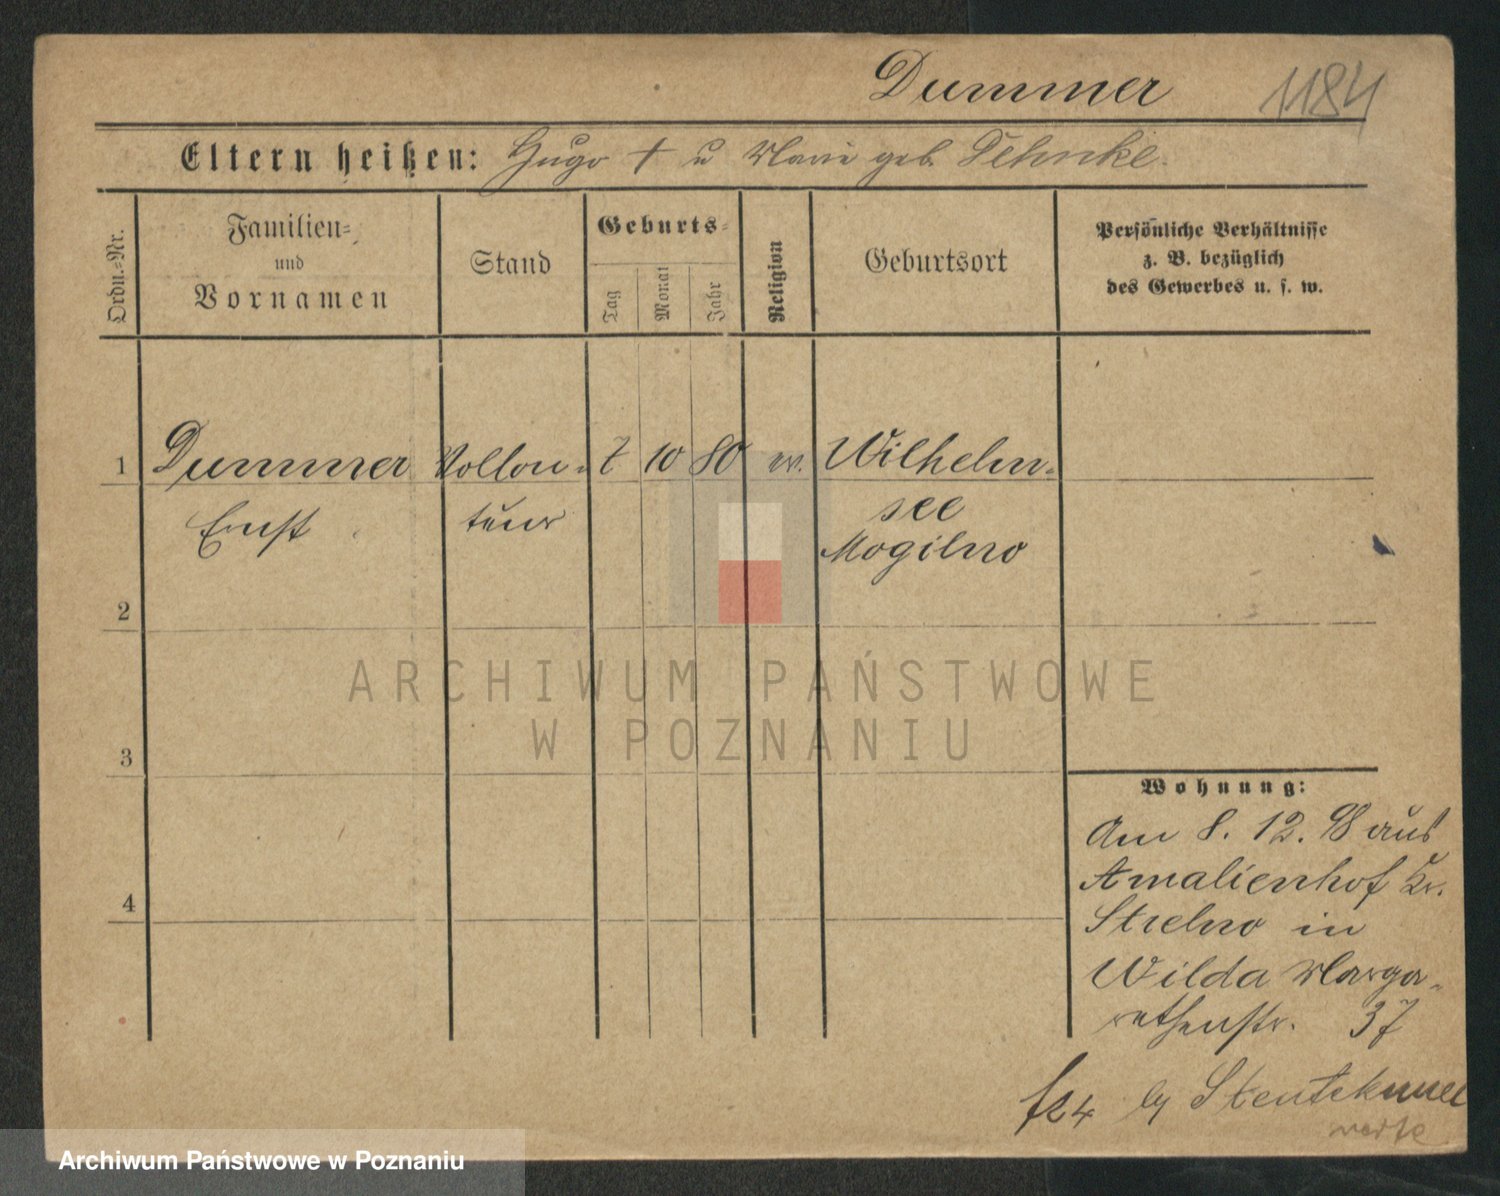 Dummer 1184
Eltern heißen: Hugo † u Marie geb. Tehnke.
Ordn.-Nr.
Familien-
und
Vornamen
Stand
Geburts-
Tag
Monat
Jahr
Religion
Geburtsort
Persönliche Verhältnisse
z. B. bezüglich
des Gewerbes u. s. w.
1 Dummer Vollon- 7 10 80 ev. Wilhelm-
Ernst teur see
Mogilno
2
3
4
Wohnung:
Am 8. 12. 98 aus
Amalienhof Kr.
Strelno in
Wilda Marga-
rethenstr. 37
by
ARCHIWUM PAŃSTWOWE
W POZNANIU
Archiwum Państwowe w Poznaniu